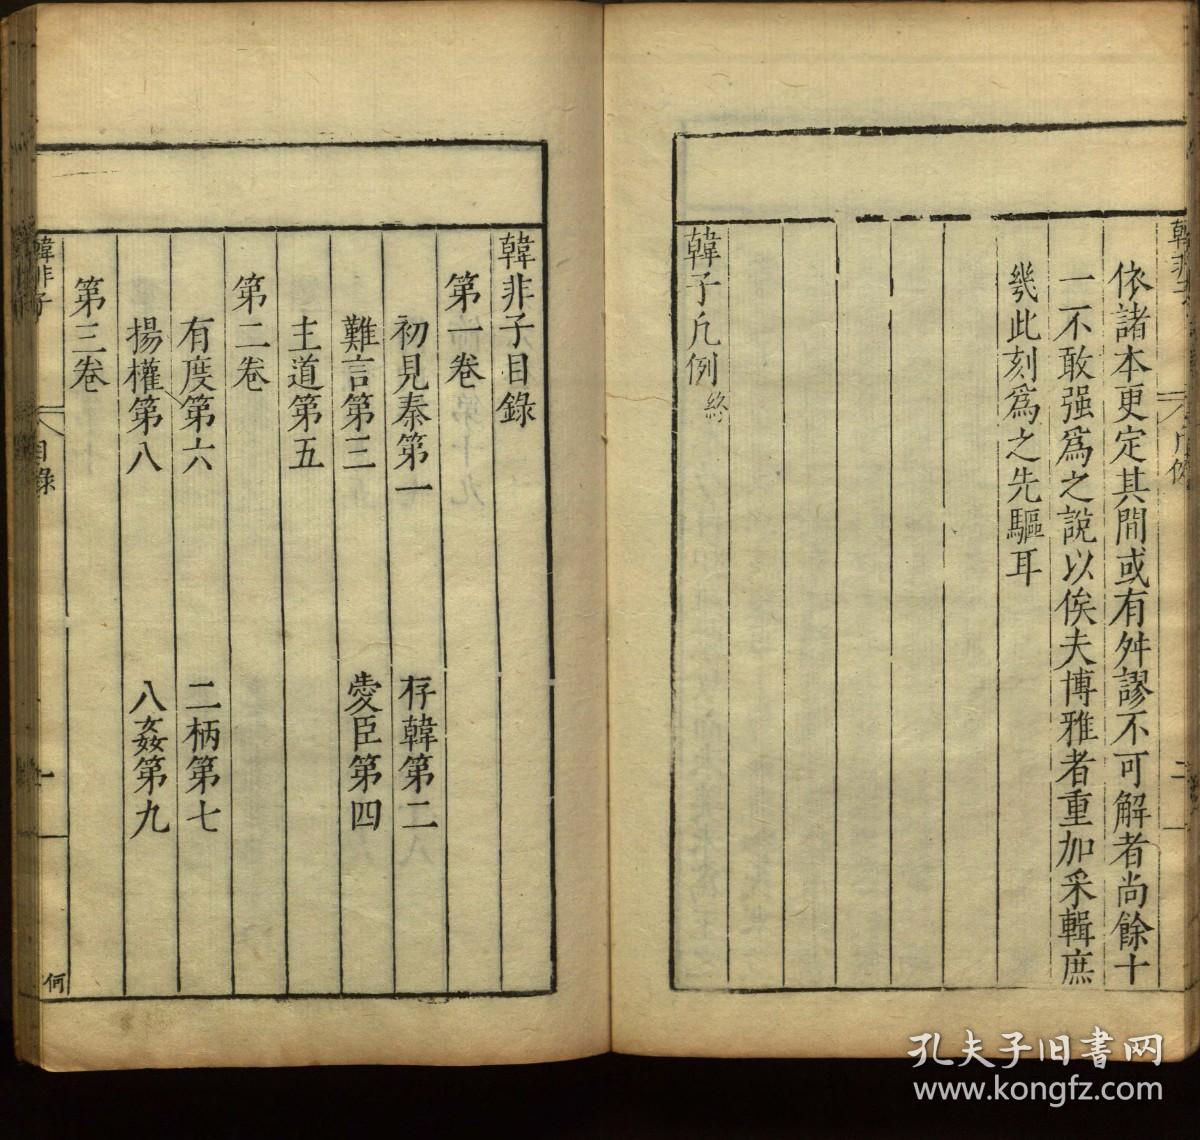 依諸本更定其間或有舛謬不可解者尚餘十
一不敢强爲之說以俟夫博雅者重加采輯庶
幾此刻爲之先驅耳
韓子凡例終
二
韓非子目錄
第一卷
初見秦第一 存韓第二
難言第三 愛臣第四
主道第五
第二卷
有度第六 二柄第七
揚權第八 八姦第九
第三卷
韓非子 目錄 一 何
孔夫子旧書网
www.kongfz.com